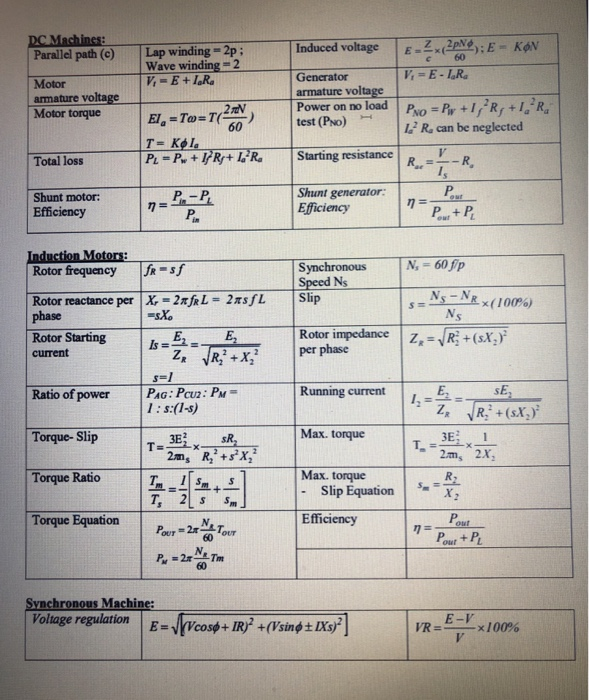 DC Machines:
Parallel path (c)
Lap winding = 2p ;
Wave winding = 2
Induced voltage
E = Z/c × (2pNφ/60) ; E = KφN
Motor
armature voltage
V₁ = E + IₐRₐ
Generator
armature voltage
V₁ = E - IₐRₐ
Motor torque
EIₐ = Tω = T(2πN/60)
T = KφIₐ
Power on no load
test (PNO)
PNO = PW + If²Rf + Iₐ²Rₐ
Iₐ² Rₐ can be neglected
Total loss
PL = Pw + If²Rf + Iₐ²Rₐ
Starting resistance
Rae = V/Is - Ra
Shunt motor:
Efficiency
η = (Pin - PL)/Pin
Shunt generator:
Efficiency
η = Pout/(Pout + PL)
Induction Motors:
Rotor frequency
fR = sf
Synchronous
Speed Ns
Ns = 60 f/p
Rotor reactance per
phase
Xr = 2πfRL = 2πsfL
=sXo
Slip
s = (NS - NR)/NS ×(100%)
Rotor Starting
current
Is = E2/ZR = E2/√(R2² + X2²)
s=1
Rotor impedance
per phase
ZR = √(R2² + (sX2)²)
Ratio of power
PAG : PCU2 : PM =
1 : s:(1-s)
Running current
I2 = E2/ZR = sE2/√(R2² + (sX2)²)
Torque- Slip
T = 3E2²/2πns × sR2/(R2² + s²X2²)
Max. torque
Tm = 3E2²/2πns × 1/2X2
Torque Ratio
Tm/Ts = 1/2[sm/s + s/sm]
Max. torque
- Slip Equation
sm = R2/X2
Torque Equation
POUT = 2π NR/60 TOUT
PM = 2π NR/60 Tm
Efficiency
η = Pout/(Pout + PL)
Synchronous Machine:
Voltage regulation
E = √[(Vcosφ + IR)² + (Vsinφ ± IXs)²]
VR = (E - V)/V ×100%